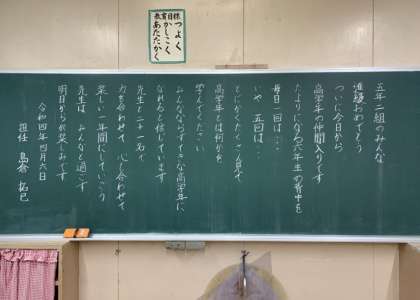 教育目標
つよく
かしこく
あたたかく
五年二組のみんな
進級おめでとう
ついに今日から
高学年の仲間入りです
たよりになる六年生の背中を
毎日一回は…
いや 五回は…
とにかくたくさん見て
高学年とは何かを
学んでください
みんななら すてきな高学年に
なれると信じています
先生と二十一名で
力を合わせて 心を合わせて
楽しい一年間にしていこう
先生は みんなと過ごす
明日からが楽しみです
令和四年四月六日
担任 島倉 拓己